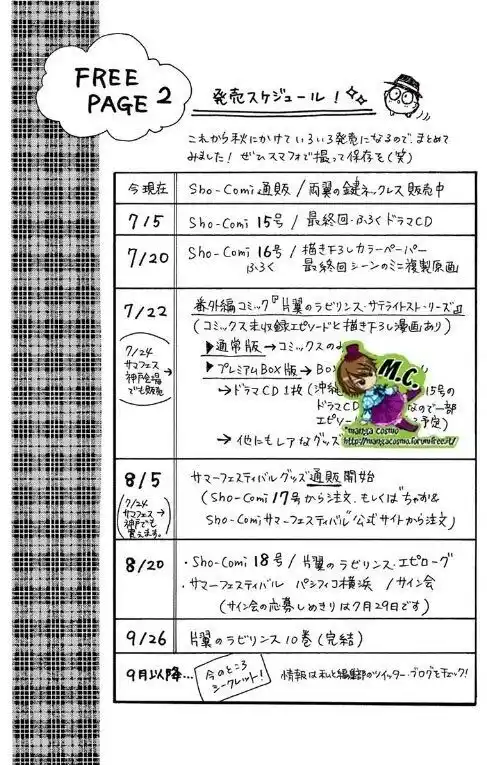 FREE
PAGE 2
発売スケジュール!
これから秋にかけていろいろ発売になるので、まとめて
みました! ぜひスマフォで撮って保存を(笑)
今現在 Sho-Comi 通販 / 両翼の鍵ネックレス 販売中
7/5 Sho-Comi 15号 / 最終回・ふろく ドラマCD
7/20 Sho-Comi 16号 / 描き下ろしカラーペーパー
ふろく 最終回シーンのミニ複製原画
7/22 番外編コミック『片翼のラビリンス・サテライトストーリーズ』
(コミックス未収録エピソードと描き下ろし漫画あり)
7/24
サマフェス
神戸会場
でも販売
▶通常版→コミックスのみ
▶プレミアムBox版→Bo
→ドラマCD 1枚(沖縄 15号の
ドラマCD なので一部
エピソー 予定)
→他にもレアなグッズ
M.C.
manga cosmo
http://mangacosmo.forumfree.it/
8/5 サマーフェスティバルグッズ通販開始
(Sho-Comi 17号から注文、もしくは"ちゃお&
Sho-Comi サマーフェスティバル"公式サイトから注文)
7/24
サマフェス
神戸でも
買えます。
8/20 ・Sho-Comi 18号 / 片翼のラビリンス・エピローグ
・サマーフェスティバル パシフィコ横浜 / サイン会
(サイン会の応募しめきりは7月29日です)
9/26 片翼のラビリンス 10巻 (完結)
9月以降… 今のところ
シークレット! 情報は私と編集部のツイッター・ブログをチェック!